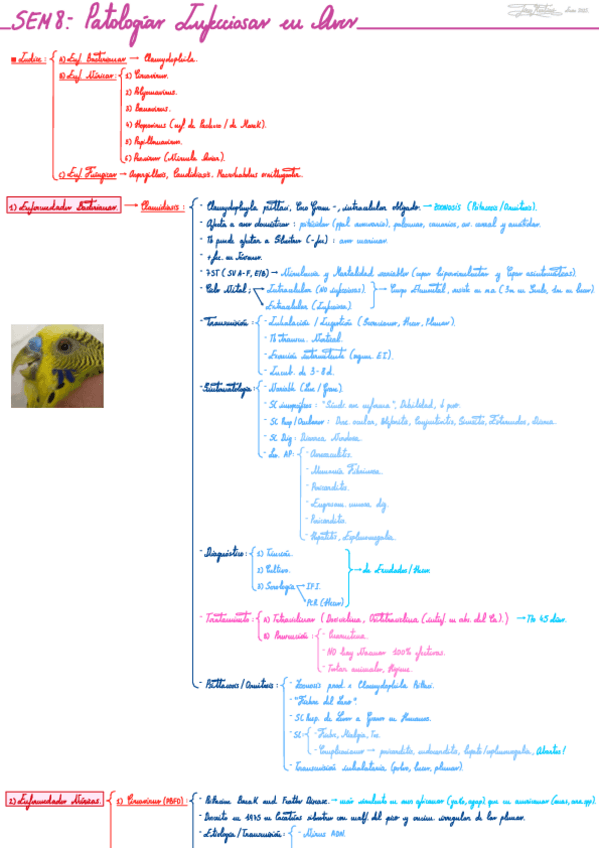 SEM 8:- Patologías Infecciosas en Aves
Índice:
A) Enf Bacterianas → Chlamydophila.
B) Enf Víricas:
1) Circovirus.
2) Polyomavirus.
3)
4) Herpesvirus (enf de Pacheco / de Marek).
5) Papillomavirus.
6) Poxvirus (Viruela Aviar).
C) Enf Fúngicas → Aspergillosis, Candidiasis. Macrorhabdus ornithogaster.
1) Enfermedades Bacterianas. → Clamidiosis:
- Chlamydophyla psittaci, Coco Gram -, intracelular obligado. → ZOONOSIS (Psitacosis/Ornitosis).
- Afecta a aves domésticas: psitácidas (ppal reservorio), palomas, canarios, av. corral y anátidas.
- Tb puede afectar a Silvestres (-fec): aves marinas.
- +fec. en Jóvenes.
- 7 ST (SV A-F, E/B) → Virulencia y Mortalidad variables
- Ciclo Vital:
Intracelular (NO infecciosa).
Extracelular (Infecciosa)
→ Cuerpo Elemental, resiste en m.a (3m en Suelo, 1m en heces).
- Transmisión:
- Inhalación / Ingestión (Secreciones, Heces, Plumas).
- Tb transm. Vertical.
- Excreción intermitente
- Incub. de 3-8d.
- Sintomatología:
- Variable
- SC inespecíficos: "Síndr. ave enferma", Debilidad, ↓ peso.
- SC Resp/Oculares: Desc. ocular, Blefaritis, Conjuntivitis, Sinusitis, Estornudos, Disnea.
- SC Dig: Diarrea Verdosa.
- Les. AP:
- Aerosaculitis
- Neumonía Fibrinosa.
- Pericarditis.
- dig.
- Pericarditis.
- Hepatitis, Esplenomegalia.
- Diagnóstico:
1) Tinción.
2) Cultivo.
3) Serología
IFI.
PCR (Heces)
→ de Exudados/Heces.
- Tratamiento:
A) Tetraciclinas (Doxiciclina, Oxitetraciclina → Tto 45 días.
B) Prevención:
- Cuarentena.
- NO hay Vacunas 100% efectivas.
- Tratar animales, Higiene.
- Psittacosis / Ornitosis:
- Zoonosis prod. x Chlamydophila Psittaci.
- "Fiebre del Loro".
- SC Resp. de Leves a Graves en Humanos.
- SC:
- Fiebre, Mialgia, Tos
- Complicaciones → pericarditis, endocarditis, hepato/esplenomegalia, Abortos!
- Transmisión inhalatoria (polvo, heces, plumas).
2) Enfermedades Víricas.
1) Circovirus (PBFD):
- Psittacine Beak and Feather Disease. → más
- Descrito en 1975 en Cacatúas silvestres con malf. del pico y crecim. irregular de las plumas.
- Etiología / Transmisión:
- Virus ADN.